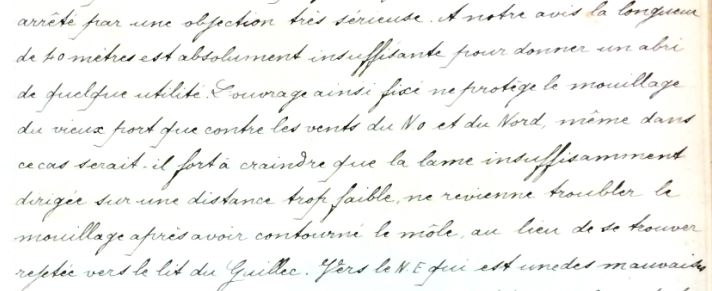 arrêté par une objection très sérieuse. A notre avis la longueur
de 40 mètres est absolument insuffisante pour donner un abri
de quelque utilité. L'ouvrage ainsi fixé ne protège le mouillage
du vieux port que contre les vents du NO et du Nord, même dans
ce cas serait-il fort à craindre que la lame insuffisamment
dirigée sur une distance trop faible, ne revienne troubler le
mouillage après avoir contourné le môle, au lieu de se trouver
rejetée vers le lit du Guillec. Vers le N.E qui est une des mauvaises